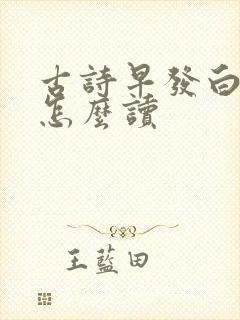 古詩早發白
怎麼讀
王藍田